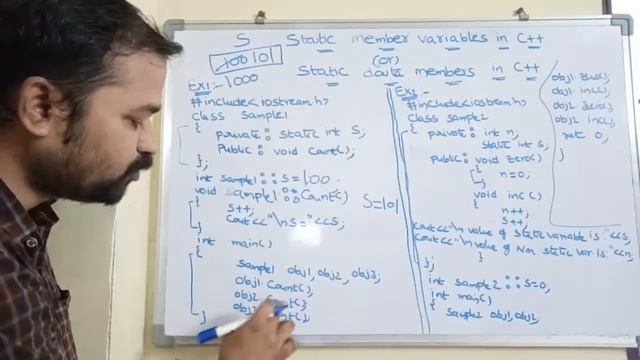 S Static member variables in C++
100101
(or)
1000
Static data members in C++
Ex1:-
#include<iostream.h>
class Sample1
{
private: static int S;
Public: void Count();
};
int sample1::S=100.
void sample1::Count()
{
S++;
Cout<<"\nS="<<S;
}
S=101
int main()
{
Sample1 obj1, obj2, obj3;
Obj1.Count();
obj2
}
Ex2:-
#include<iostream.h>
class sample2
{
private: int n,
static int S;
public: void zero()
{
n=0;
}
void inc()
{
n++;
S++;
Cout<<"\n value of static variable is:"<<S;
Cout<<"\n value of Non static var is:"<<n;
}
};
int sample2::S=0;
int main()
{
Sample2 obj1, obj2;
obj1.zero();
obj1.inc();
obj2.zero();
obj2.inc();
ret 0;
}